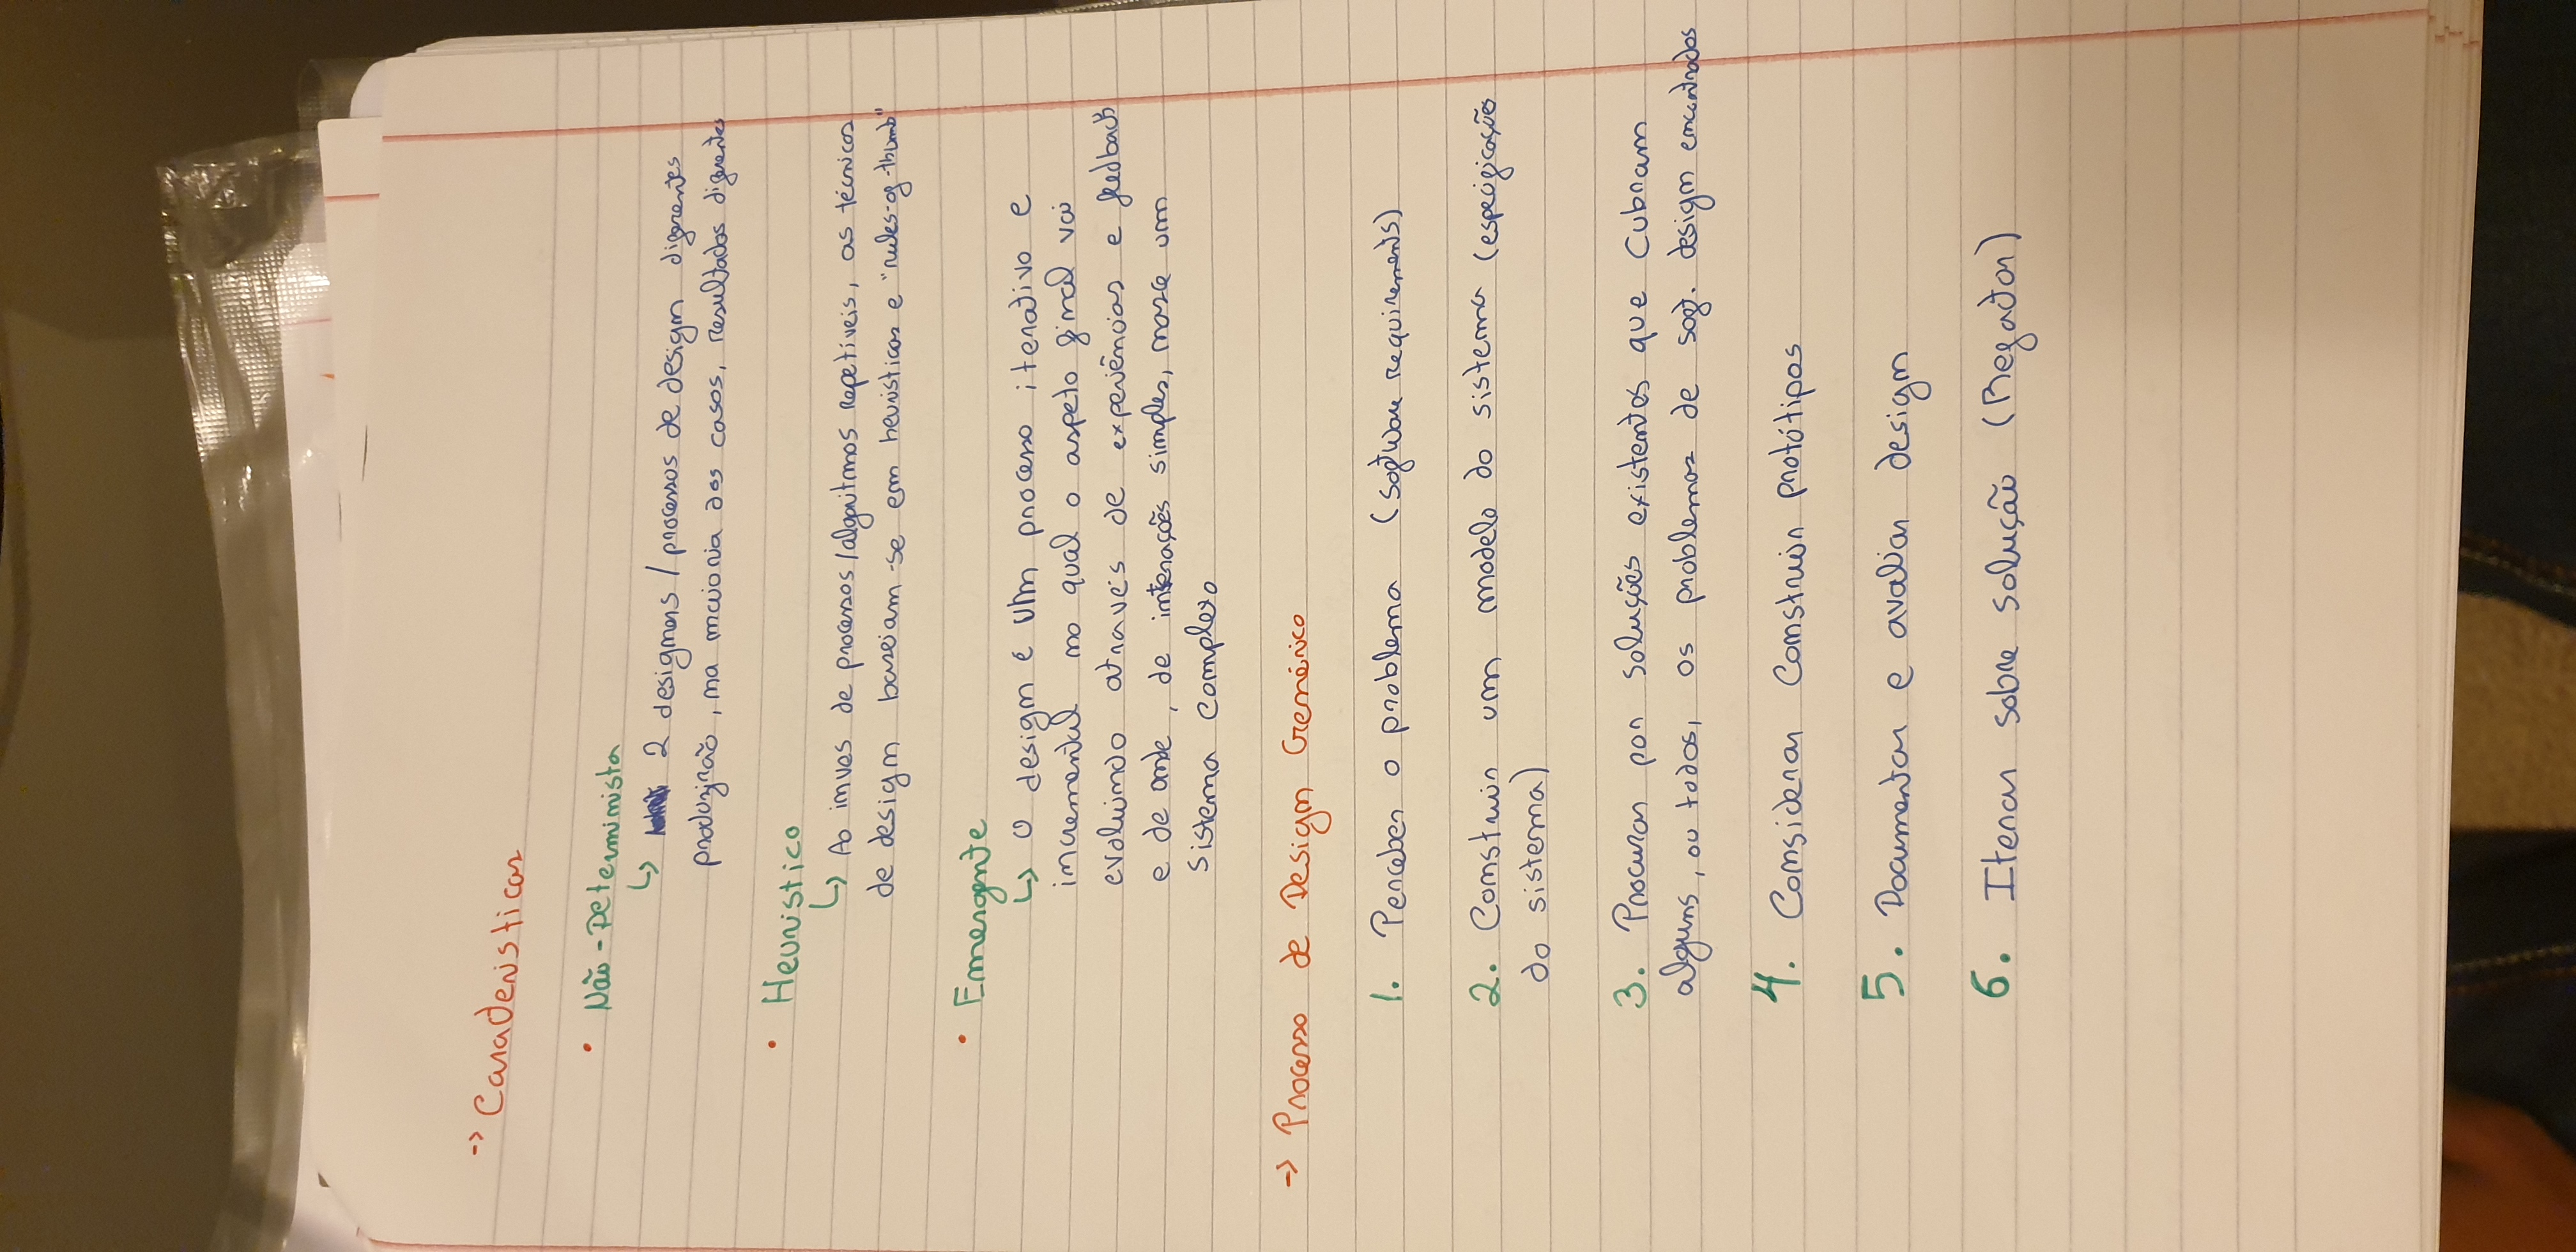 -> Caracteristicas
• Não-Determinista
↳ 2 designers / processos de design diferentes
produzirão, na maioria dos casos, resultados diferentes
• Heuristico
↳ Ao inves de processos/algoritmos repetiveis, as técnicas
de design baseiam-se em heuristicas e "rules-of-thumb"
• Emergente
↳ O design é um processo iterativo e
incremental no qual o aspeto final vai
evoluindo através de experiências e feedback
e de onde, de interações simples, nasce um
sistema complexo
-> Processo de Design Genérico
1. Perceber o problema (software requirements)
2. Construir um modelo do sistema (especificações
do sistema)
3. Procurar por soluções existentes que cubram
alguns, ou todos, os problemas de soft. design encontrados
4. Considerar construir protótipos
5. Documentar e avaliar design
6. Iterar sobre solução (Refator)